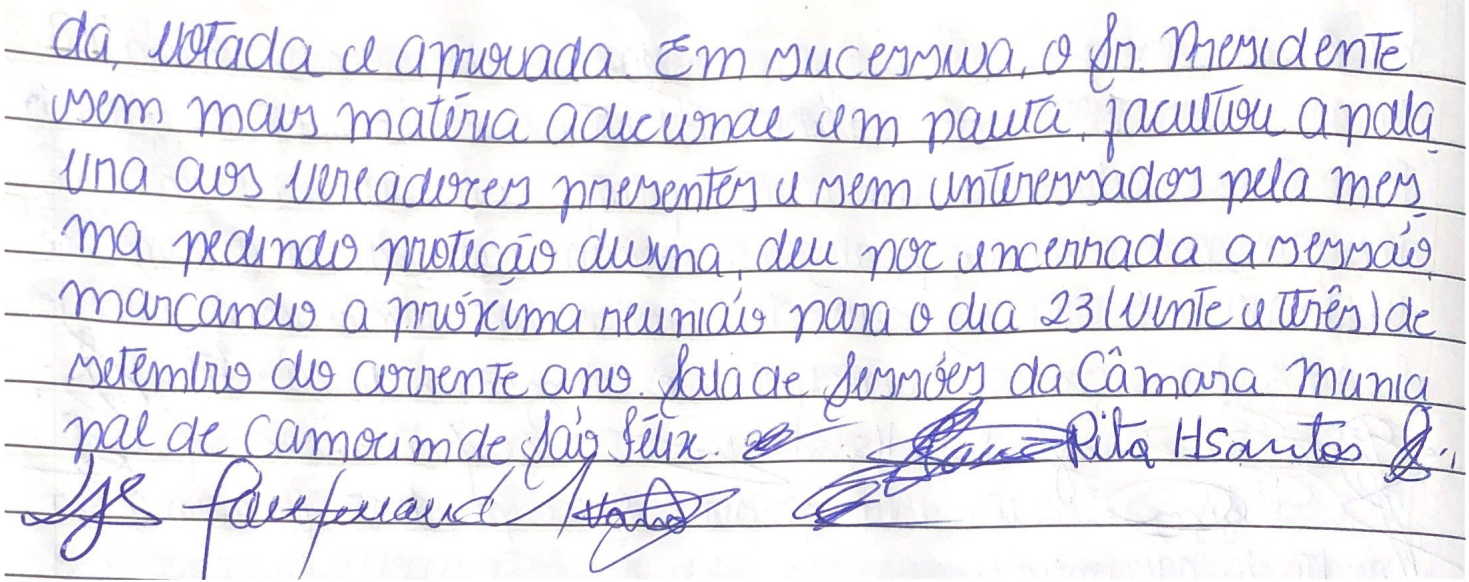 da, votada e aprovada. Em sucessiva, o Sr. Presidente
sem mais matéria adicional em pauta, facultou a pala
vra aos vereadores presentes e sem interessados pela mes
ma pedindo proteção divina, deu por encerrada a sessão,
marcando a próxima reunião para o dia 23 (vinte e três) de
setembro do corrente ano. Sala de Sessões da Câmara Munici
pal de Camocim de São Félix.
Rita Hsantos